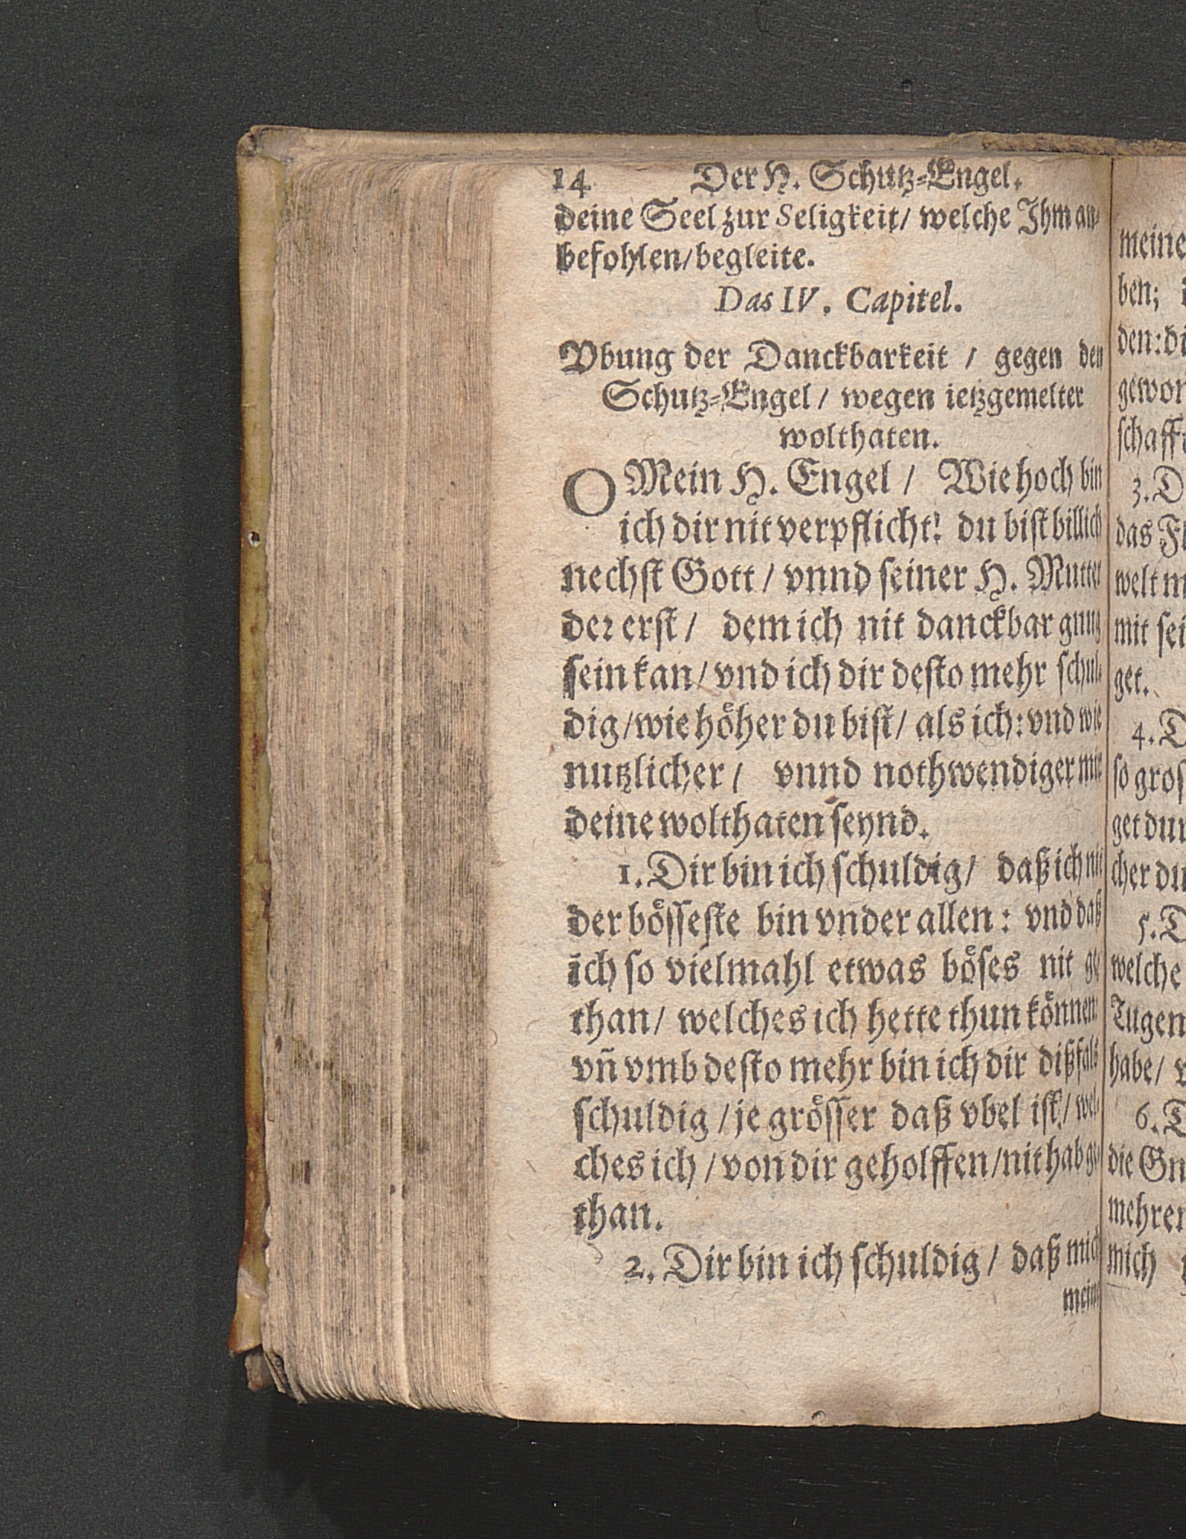 14 Der H. Schutz-Engel.
deine Seel zur Seligkeit/ welche Ihm an-
befohlen/begleite.
Das IV. Capitel.
Vbung der Danckbarkeit / gegen den
Schutz-Engel/ wegen ietzgemelter
wolthaten.
O Mein H. Engel / Wie hoch bin
ich dir nit verpflicht! du bist billich
nechst Gott / vnnd seiner H. Mutter
der erst / dem ich nit danckbar gnug
sein kan/ vnd ich dir desto mehr schul-
dig/wie höher du bist/ als ich: vnd wie
nutzlicher / vnnd nothwendiger mir
deine wolthaten seynd.
1. Dir bin ich schuldig/ daß ich nit
der bösseste bin vnder allen: vnd daß
ich so vielmahl etwas böses nit ge
than/ welches ich hette thun können:
vñ vmb desto mehr bin ich dir dißfals
schuldig /je grösser daß vbel ist/ wel-
ches ich /von dir geholffen/nit hab ge-
than.
2. Dir bin ich schuldig / daß mich
mein
meine
ben;
den: di
3. D
das Fl
welt m
mit sei
get.
4. D
so gros
get dur
cher du
5. D
welche
Tugen
habe/ v
6. D
die Gn
mehrer
mich